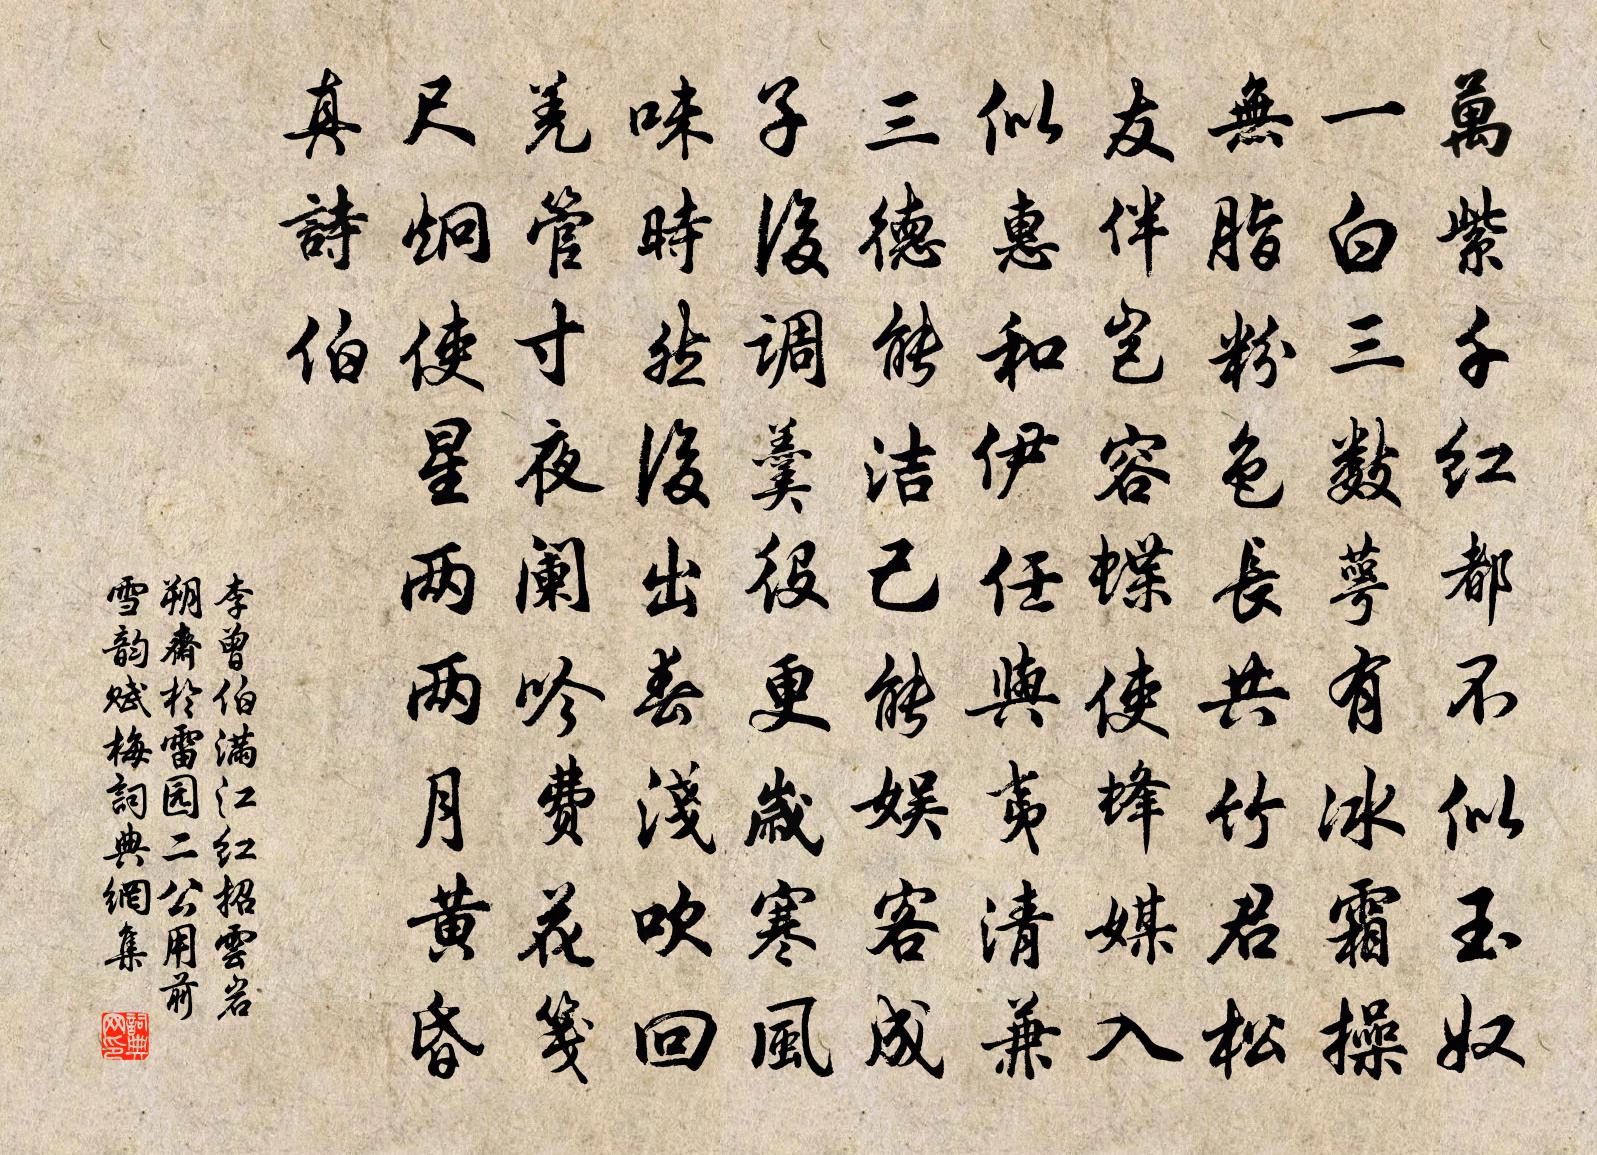 萬紫千红都不似玉奴
一白三数萼有冰霜操
無脂粉色長共竹君松
友伴岂容蝶使蜂媒入
似惠和伊任與夷清兼
三德能洁己能娱客成
子後调羹役更歲寒風
味時然後出春淺吹回
羌管寸夜阑吟费花箋
尺炯使星两两月黄昏
真詩伯
李曾伯满江红招雲岩
朔齋於雷园二公用前
雪韵赋梅詞典網集
詞典网印